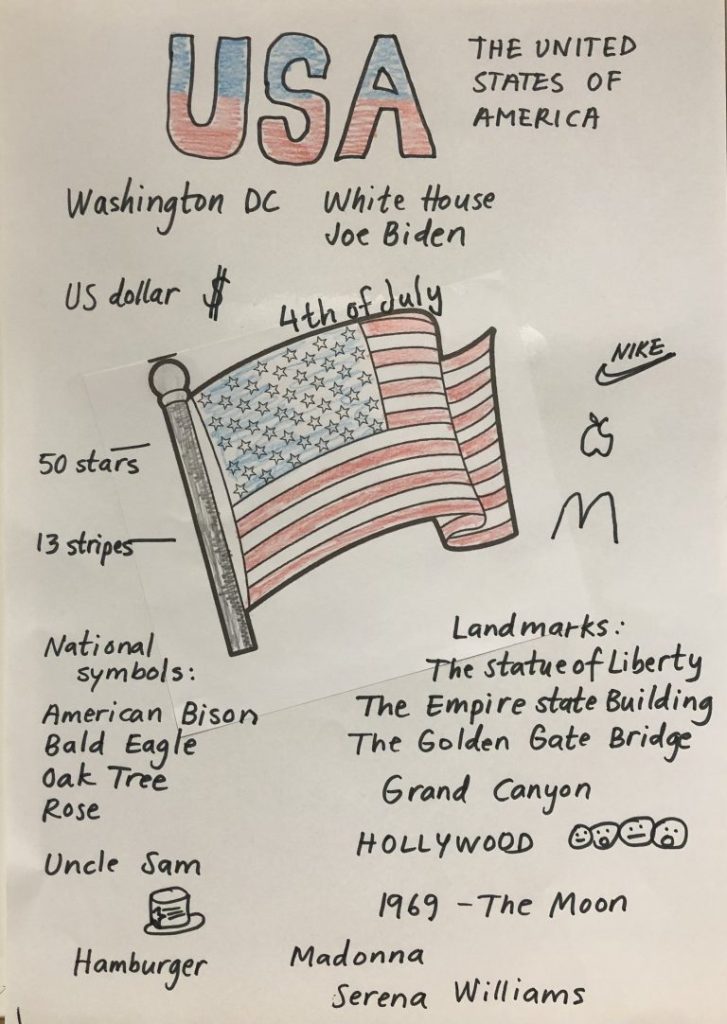 USA
THE UNITED
STATES OF
AMERICA
Washington DC
White House
Joe Biden
US dollar $
4th of July
NIKE
50 stars
13 stripes
National
symbols:
American Bison
Bald Eagle
Oak Tree
Rose
Uncle Sam
Hamburger
Landmarks:
The statue of Liberty
The Empire state Building
The Golden Gate Bridge
Grand Canyon
HOLLYWOOD
1969 - The Moon
Madonna
Serena Williams